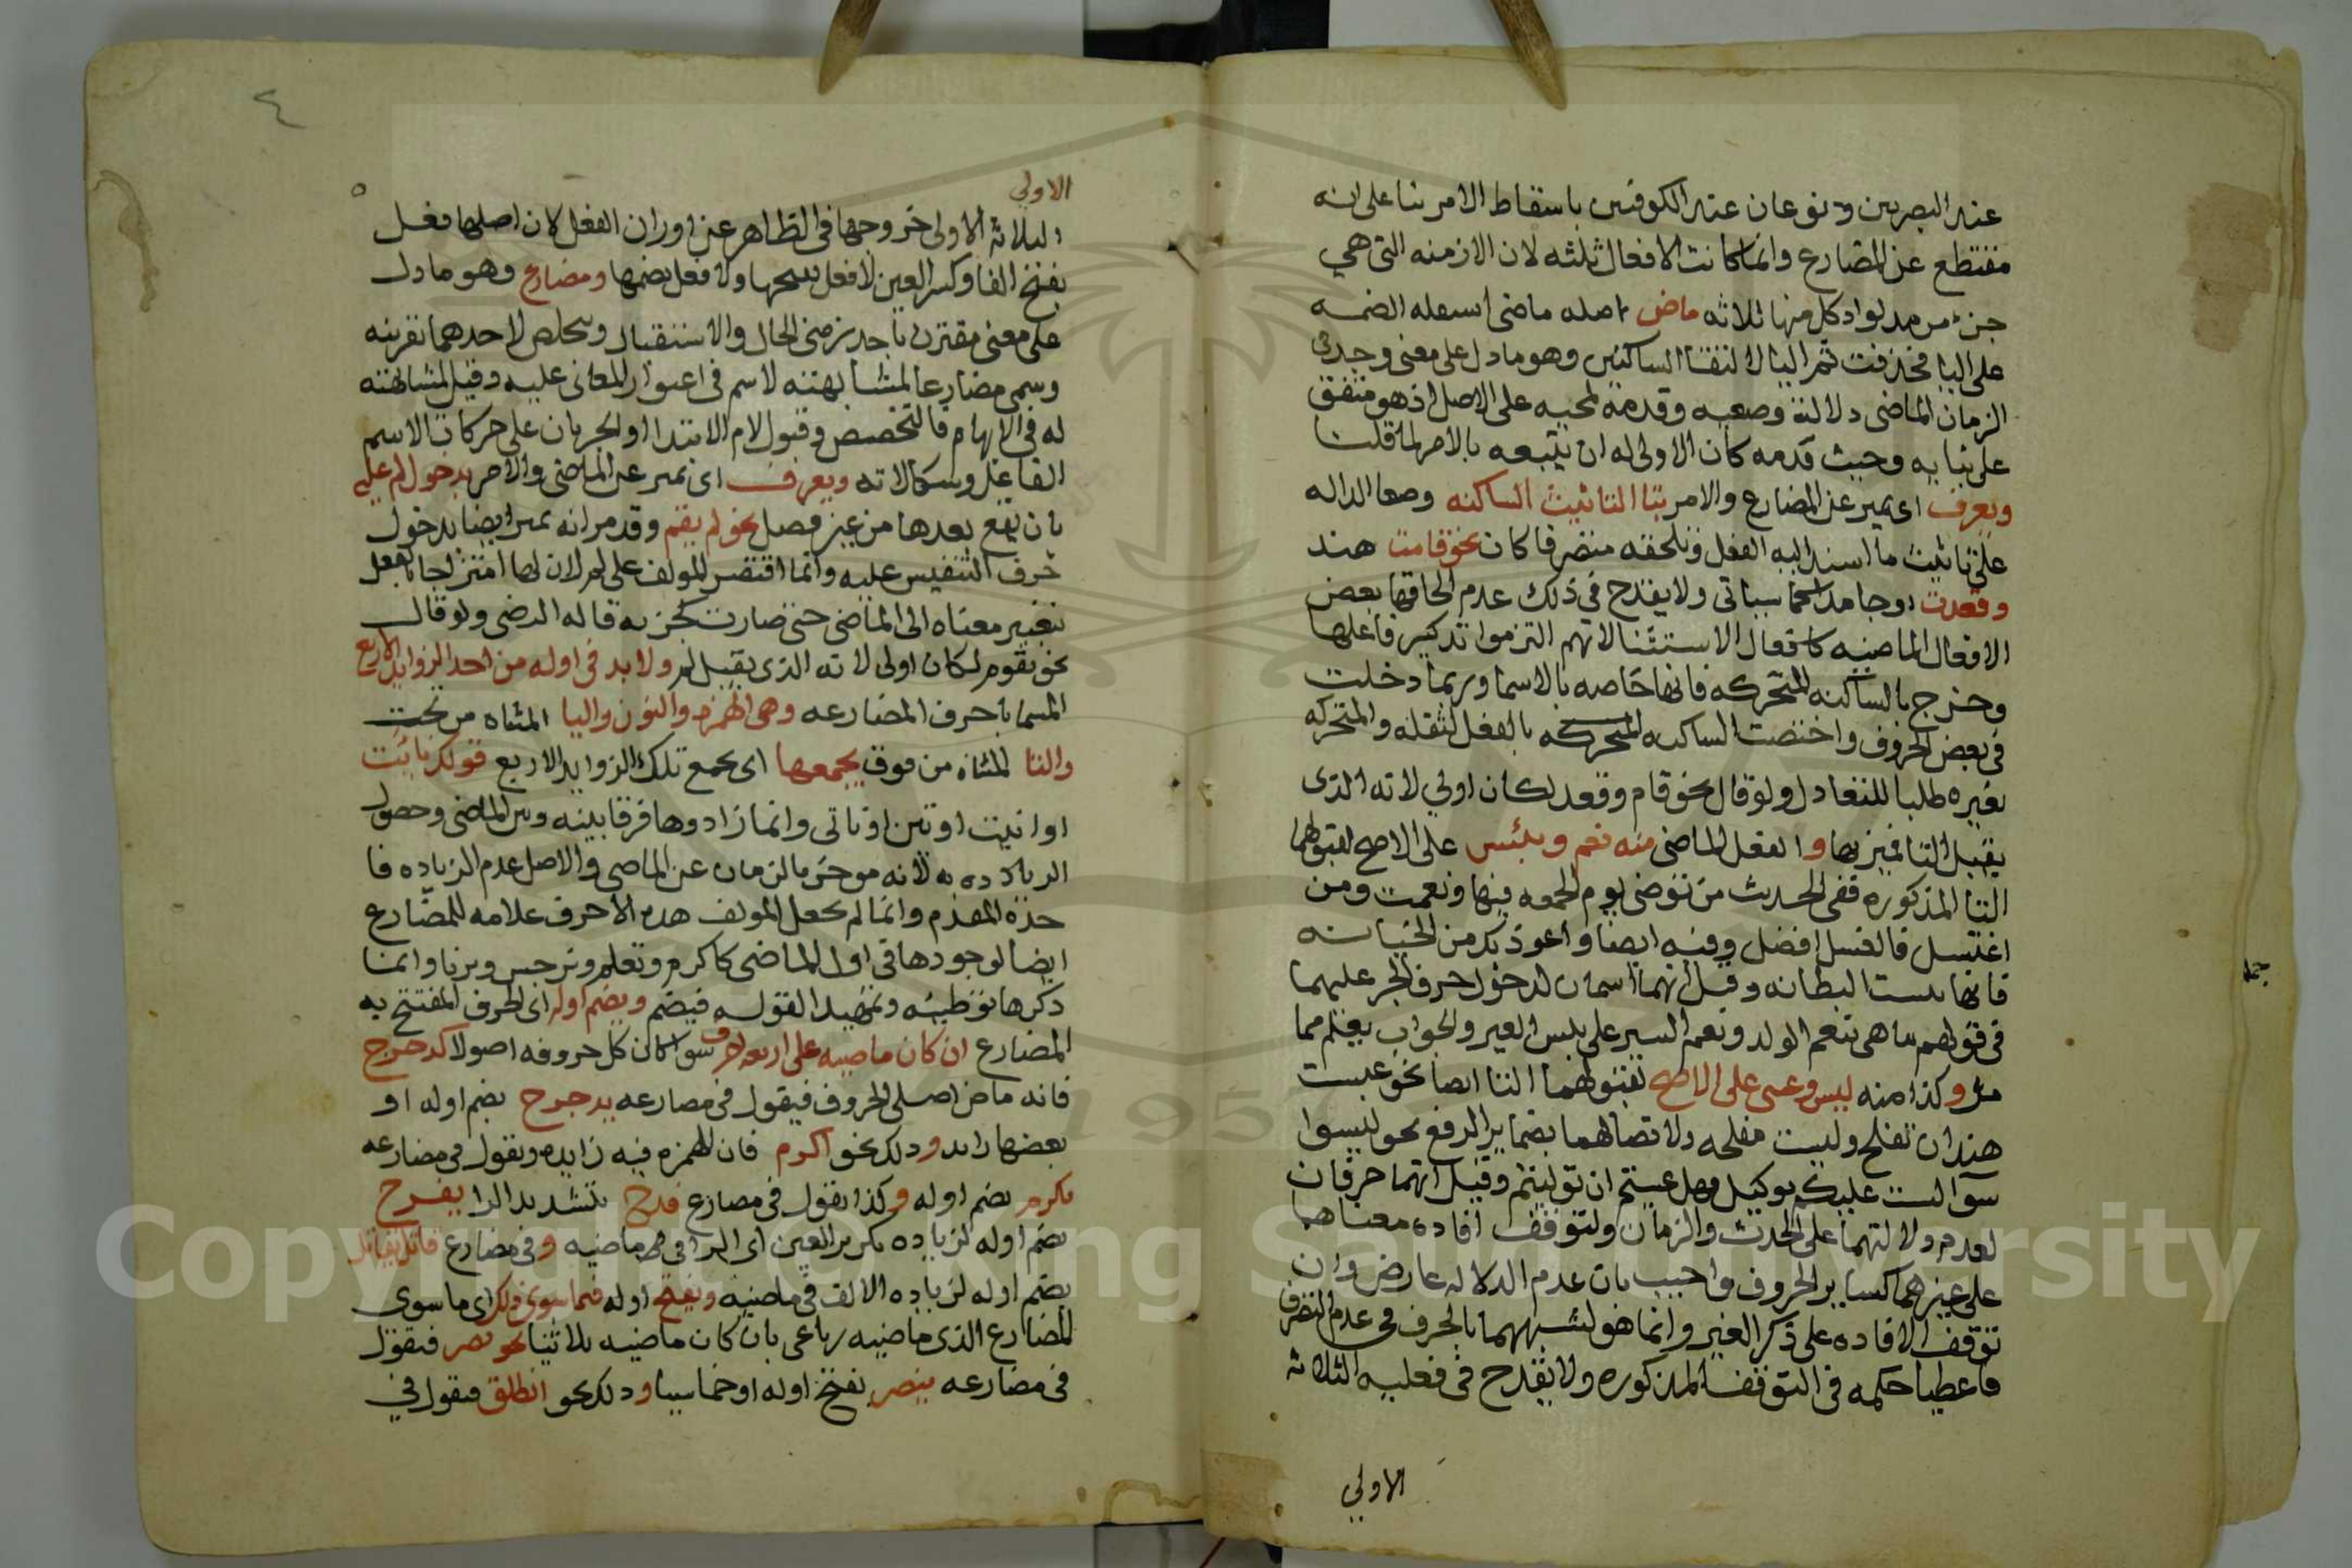 عند البصريين ونوعان عند الكوفيين باسقاط الامر بنا على انه
مقتطع عن المضارع وانما كانت الافعال ثلثه لان الازمنه التي هي
جزء من مدلواد كل منها ثلاثه ماض اصله ماضي استعله الضمه
على اليا فحذفت ثم اليا لالتقا الساكنين وهو ما دل على معنى وجد في
الزمان الماضي دلالته وضعيه وقدمه لمجيه على الاصل اذ هو متفق
على بنايه وحيث قدمه كان الاولى له ان يتبعه بالامر لما قلنا
ويعرف اي يميز عن المضارع والامر بتا التانيث الساكنه وضعا الداله
على تانيث ما اسند اليه الفعل وتلحقه متصرفا كان نحو قامت هند
وقعدت اوجامدا كما سياتي ولا يقدح في ذلك عدم الحاقها بعض
الافعال الماضيه كافعال الاستثنا لانهم التزموا تذكير فاعلها
وخرج بالساكنه المتحركه فانها خاصه بالاسما وربما دخلت
في بعض الحروف واختصت الساكنه المتحركه بالفعل لثقله والمتحركه
بغيره طلبا للتعادل ولو قال نحو قام وقعد لكان اولي لانه الذى
يقبل التا فميز بها والفعل الماضي منه نعم وبئس على الاصح لقبولهما
التا المذكوره ففي الحديث من توضى يوم الجمعه فبها ونعمت ومن
اغتسل فالغسل افضل وفيه ايضا واعوذ بك من الخيانه
فانها بئست البطانه وقيل انهما اسمان لدخول حرف الجر عليهما
في قولهم ما هي بنعم الولد ونعم السير على بئس العير والجواب يعلم مما
مر وكذا منه ليس وعسى على الاصح لقبولهما التا ايضا نحو عست
هند ان تفلح وليست مفلحه ولاتصالهما بضماير الرفع نحو ليسوا
سوا لست عليكم بوكيل فهل عسيتم ان توليتم وقيل انهما حرفان
لعدم دلالتهما على الحدث والزمان ولتوقف افاده معناهما
على غيرهما كساير الحروف واجيب بان عدم الدلاله عارض وان
توقف الافاده على ذكر الغير وانما هو لشبههما بالحرف في عدم التصرف
فاعطيا حكمه في التوقف المذكوره ولا يقدح في فعليه الثلاثه
الاولي
٤
الاولي
الثلاثه الاولى خروجها في الظاهر عن اوزان الفعل لان اصلها فعل
بفتح الفا وكسر العين لا فعل بفتحها ولا فعل بضمها ومضارع وهو ما دل
على معنى مقترن باحد زمني الحال والاستقبال ويتخلص لاحدهما بقرينه
وسمى مضارعا لمشابهته لاسم في اعتوار المعاني عليه وقيل لمشابهته
له في الابهام والتخصيص وقبول لام الابتدا او الجريان على حركات الاسم
الفاعل وسكناته ويعرف اى يميز عن الماضي والامر بدخول لم عليه
بان يقع بعدها من غير فصل نحو لم يقم وقد مر انه يميز ايضا بدخول
حرف التنفيس عليه وانما اقتصر المولف على لم لان لها امتزاجا بالفعل
بتغيير معناه الى الماضي حتى صارت كجزيه قاله الرضى ولو قال
نحو يقوم لكان اولى لانه الذى يقبل لم ولا بد في اوله من احد الزوايد الاربع
المسما باحرف المضارعه وهي الهمزه والنون واليا المثناه من تحت
والتا المثناه من فوق يجمعها اى يجمع تلك الزوايد الاربع قولك نايت
او انيت او نتين او ناتي وانما زادوها فرقا بينه وبين الماضي وحصول
الزياده به لانه موخر بالزمان عن الماضي والاصل عدم الزياده فا
خذه المقدم وانما لم يجعل المولف هذه الاحرف علامه للمضارع
ايضا لوجودها في اول الماضي كاكرم وتعلم ونرجس ويرنا وانما
ذكرها توطيئه وتمهيدا لقوله فيضم ويضم اوله اى الحرف المفتتح به
المضارع ان كان ماضيه على اربعه احرف سوا كان كل حروفه اصولا كدحرج
فانه ماض اصلي الحروف فيقول في مضارعه يدحرج بضم اوله او
بعضها زايد وذلك نحو اكرم فان الهمزه فيه زايده وتقول في مضارعه
يكرم بضم اوله وكذا تقول في مضارع فرح بتشديد الرا يفرح
بضم اوله لزياده تكرير العين اى الرا في ماضيه وفي مضارع قاتل يقاتل
بضم اوله لزياده الالف في ماضيه ويفتح اوله فيما سوى ذلك اى ما سوى
المضارع الذى ماضيه رباعى بان كان ماضيه ثلاثيا نحو نصر فتقول
في مضارعه ينصر بفتح اوله او خماسيا وذلك نحو انطلق فتقول في
Copyright © King Saud University
1957